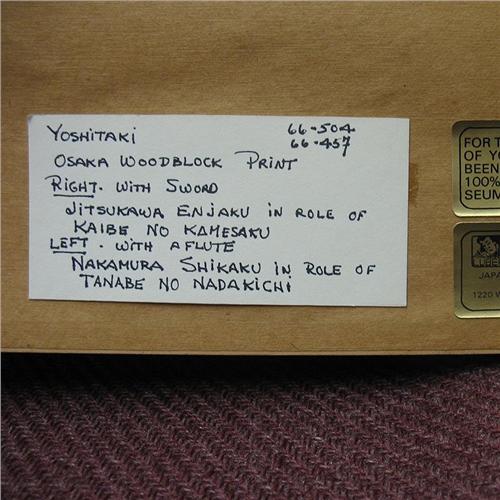 Yoshitaki 66-504
66-457
Osaka Woodblock Print
Right. with Sword
Jitsukawa Enjaku in role of
Kaibe no Kamesaku
Left. with a flute
Nakamura Shikaku in role of
Tanabe no Nadakichi
FOR T
OF YO
BEEN
100%
SEUM
JAPA
1220 W